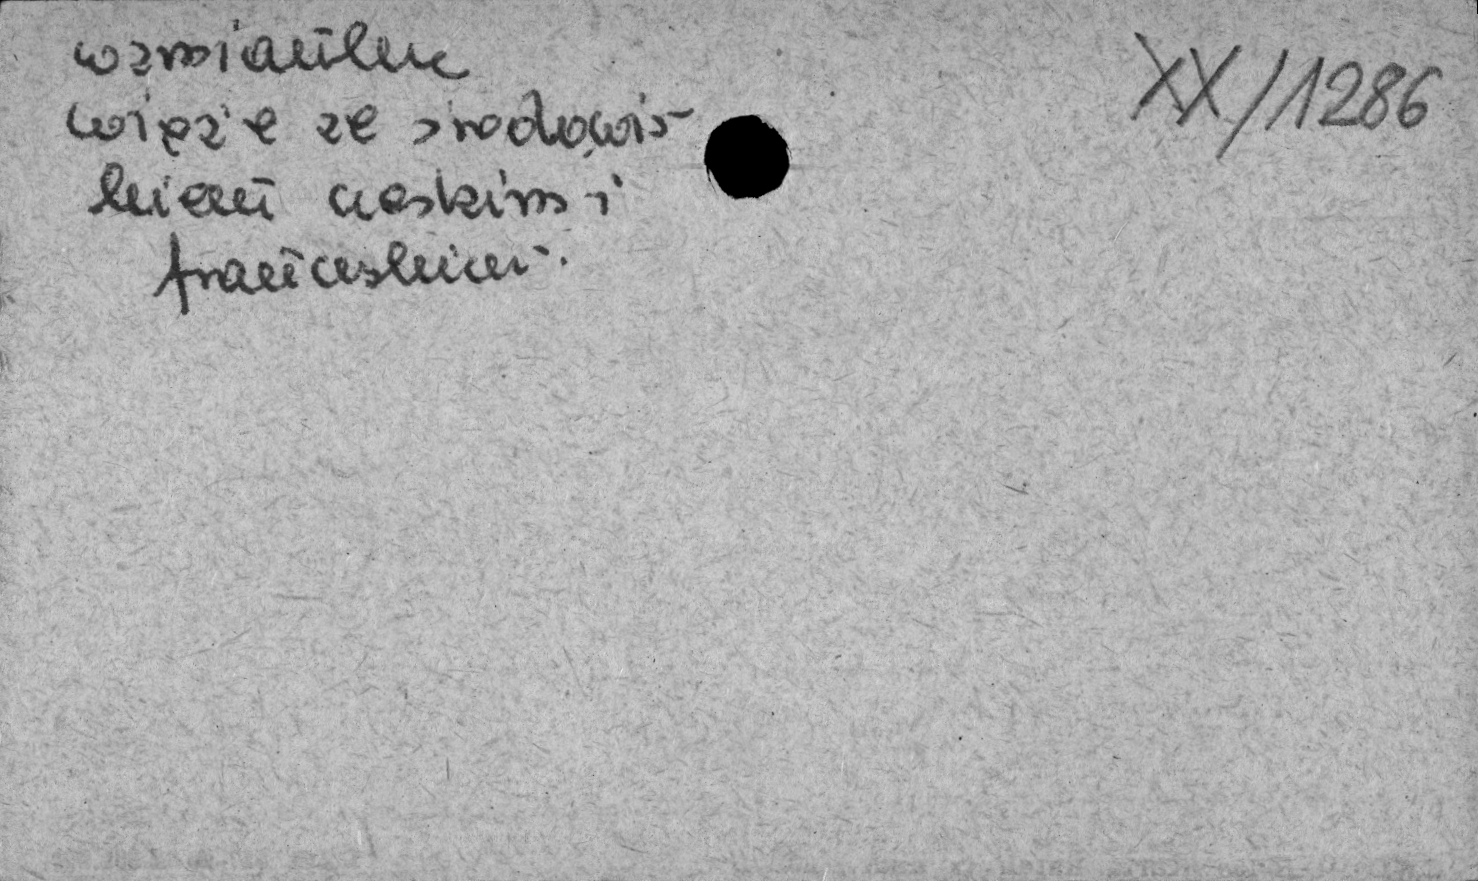 wzmianka
wiąże ze środowis-
kiem czeskim i
francuskim.
XX/1286